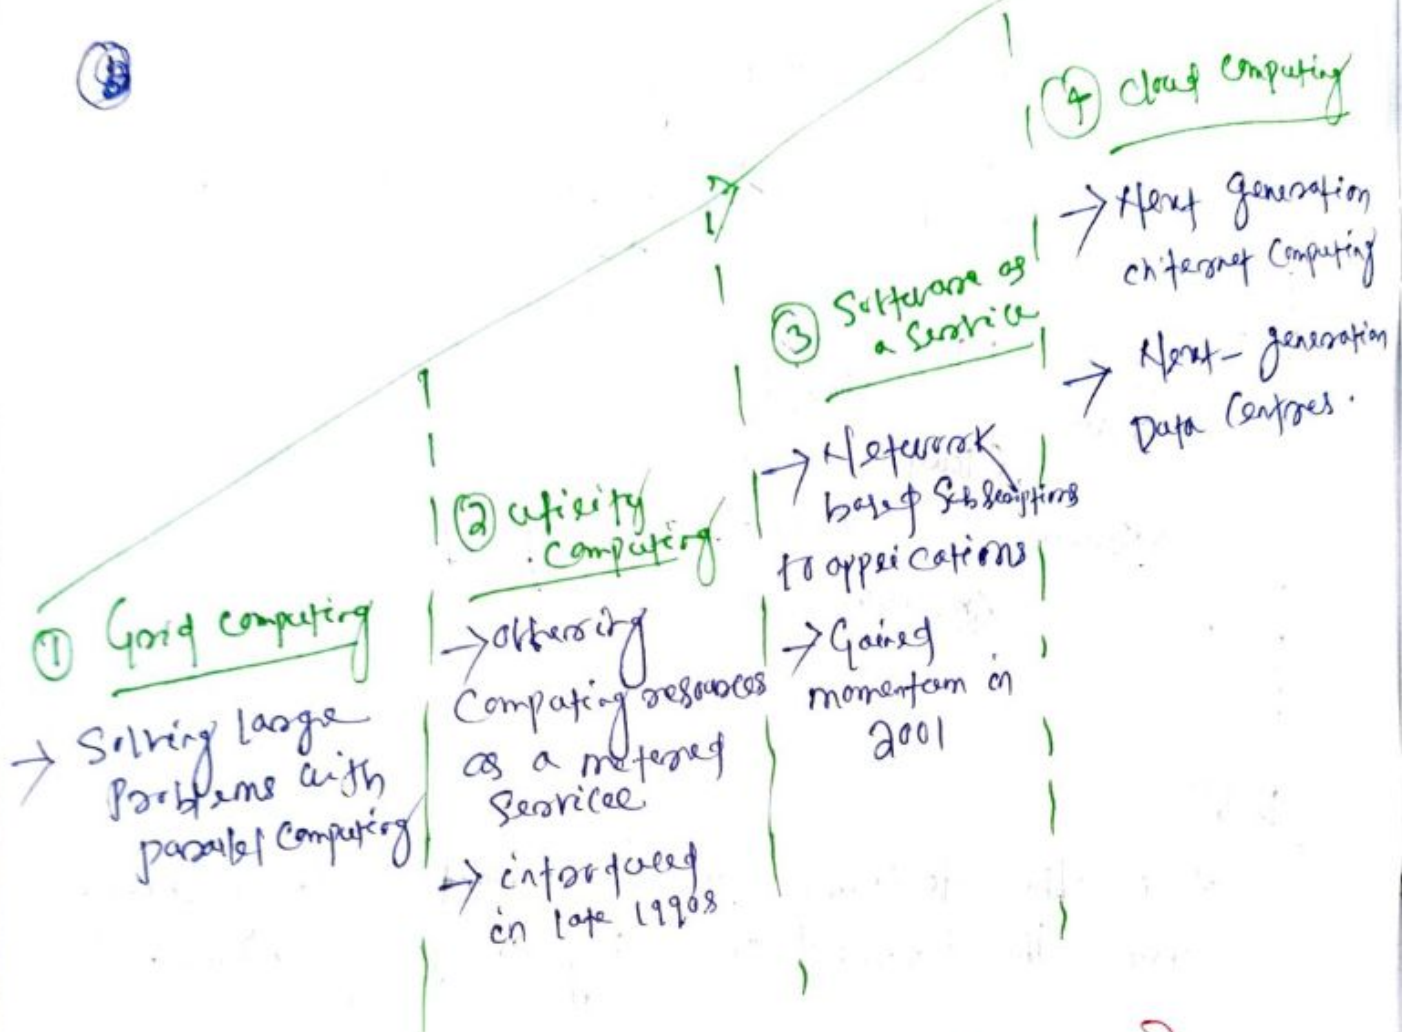 ① Grid computing
→ Solving large
Problems with
parallel Computing
② utility
computing
→ offering
Computing resources
as a metered
Service
→ introduced
in late 1990s
③ Software as
a Service
→ Network
based Subscriptions
to applications
→ Gained
momentum in
2001
④ Cloud Computing
→ Next Generation
internet Computing
→ Next-generation
Data Centres.